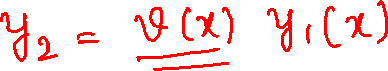 y₂ = v(x) y₁(x)